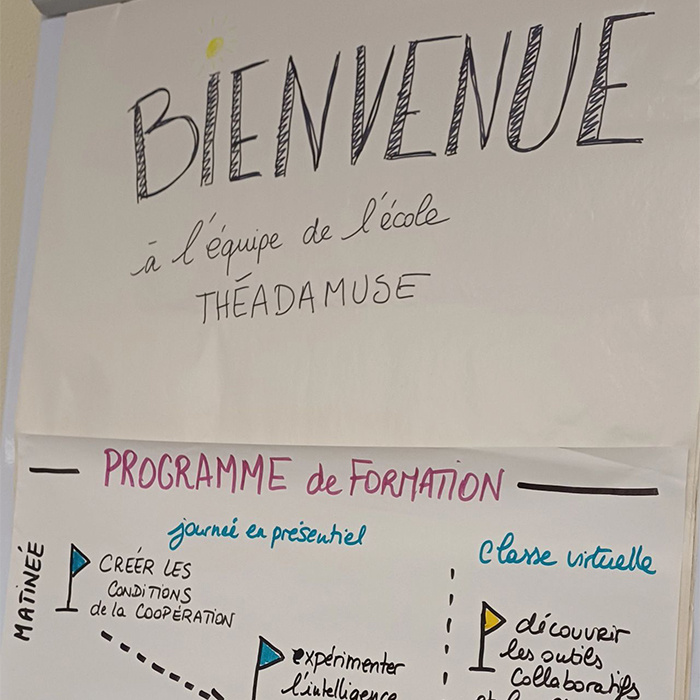 BIENVENUE
à l'équipe de l'école
THÉADAMUSE
PROGRAMME de FORMATION
journeé en présentiel
Classe virtuelle
MATINEÉ
CREÉR LES
CONDITIONS
de la COOPÉRATION
expérimenter
l'intelligence
découvrir
les outils
collaboratifs